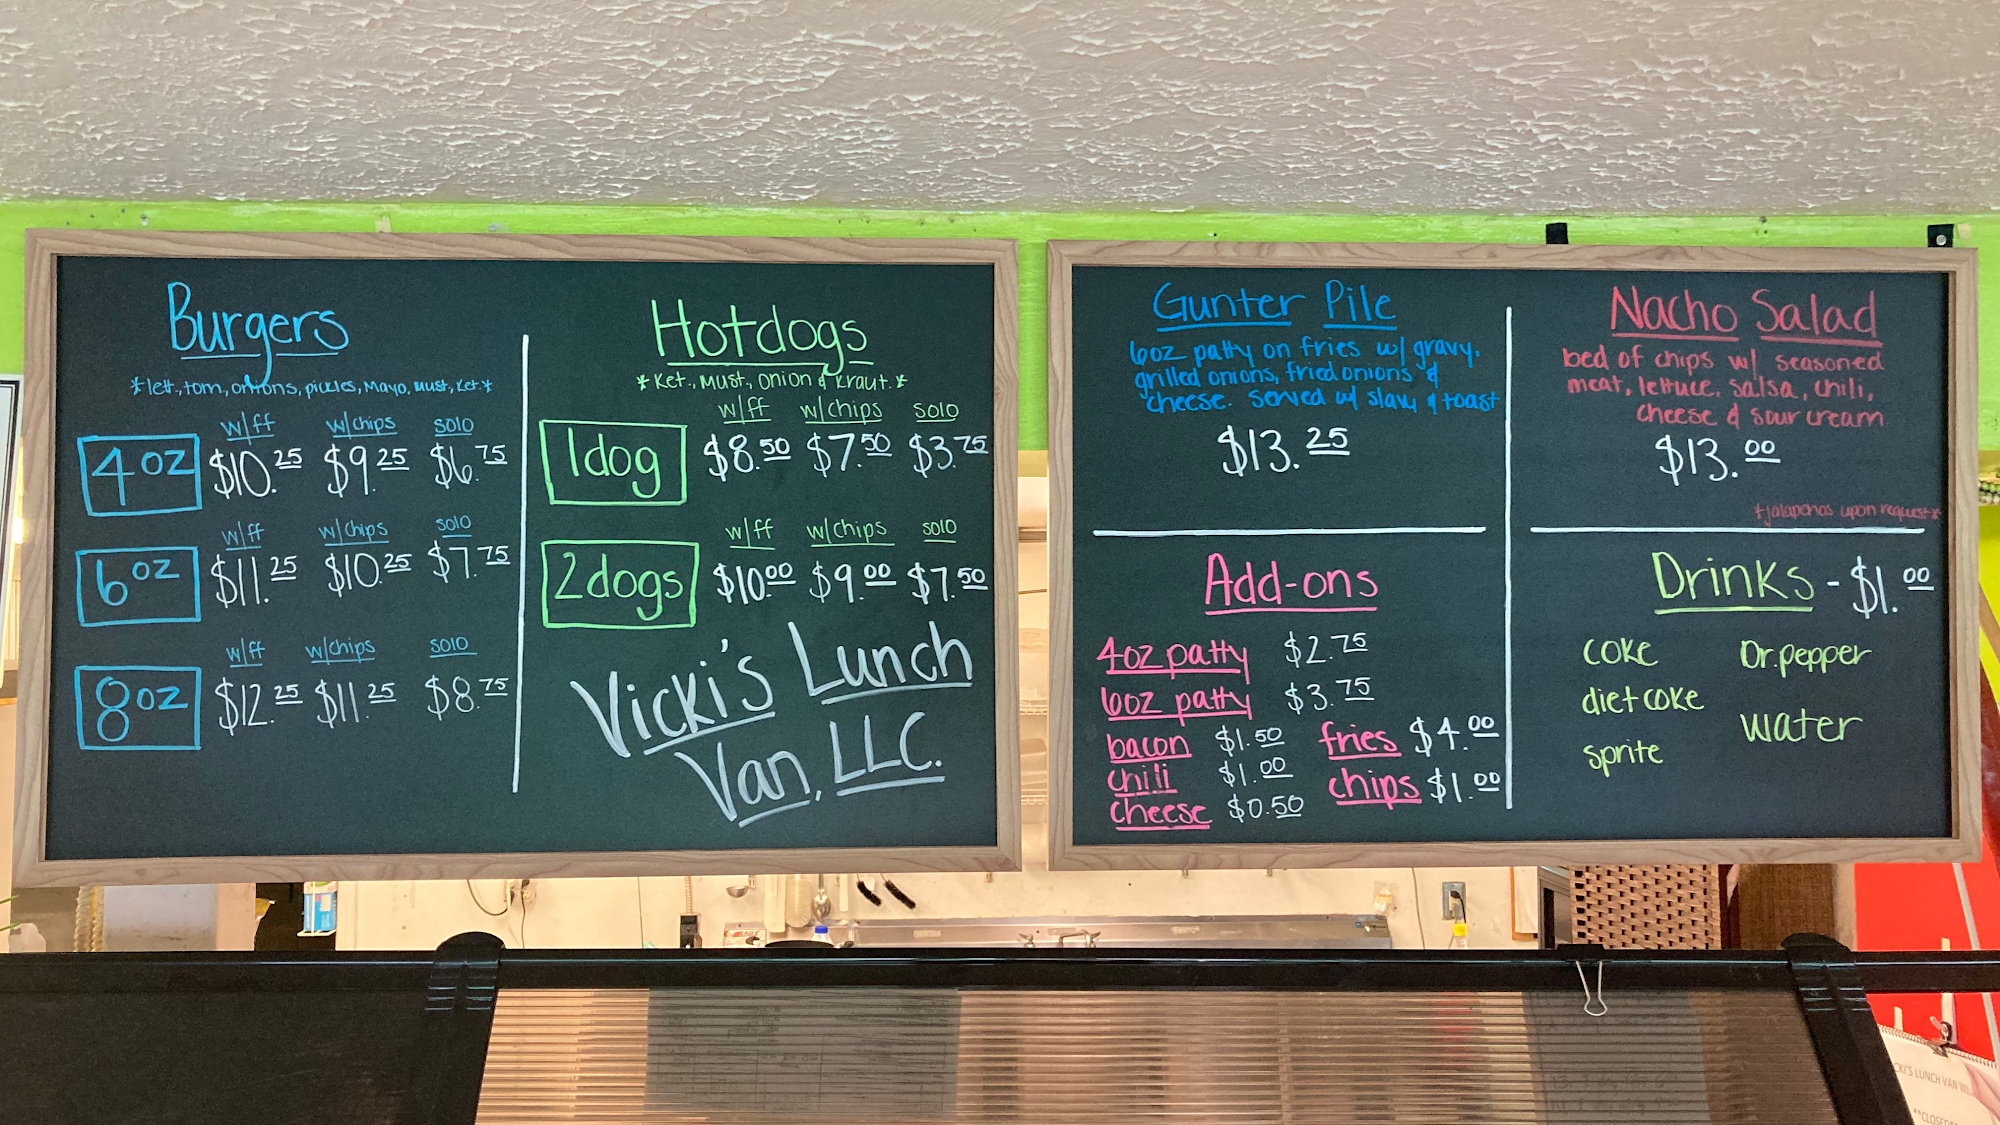 Burgers
*lett., tom., onions, pickles, Mayo, must., ket.*
w/ff w/chips solo
4oz $10.25 $9.25 $6.75
w/ff w/chips solo
6oz $11.25 $10.25 $7.75
w/ff w/chips solo
8oz $12.25 $11.25 $8.75
Hotdogs
*Ket., Must., onion & Kraut.*
w/ff w/chips solo
1dog $8.50 $7.50 $3.75
w/ff w/chips solo
2dogs $10.00 $9.00 $7.50
Vicki's Lunch
Van, LLC.
Gunter Pile
6oz patty on fries w/ gravy,
grilled onions, fried onions &
cheese. served w/ slaw & toast
$13.25
Nacho Salad
bed of chips w/ seasoned
meat, lettuce, salsa, chili,
cheese & sour cream
$13.00
*jalapenos upon request*
Add-ons
4oz patty $2.75
6oz patty $3.75
bacon $1.50
chili $1.00
cheese $0.50
fries $4.00
chips $1.00
Drinks - $1.00
coke
diet coke
sprite
Dr.pepper
water
LUNCH VAN